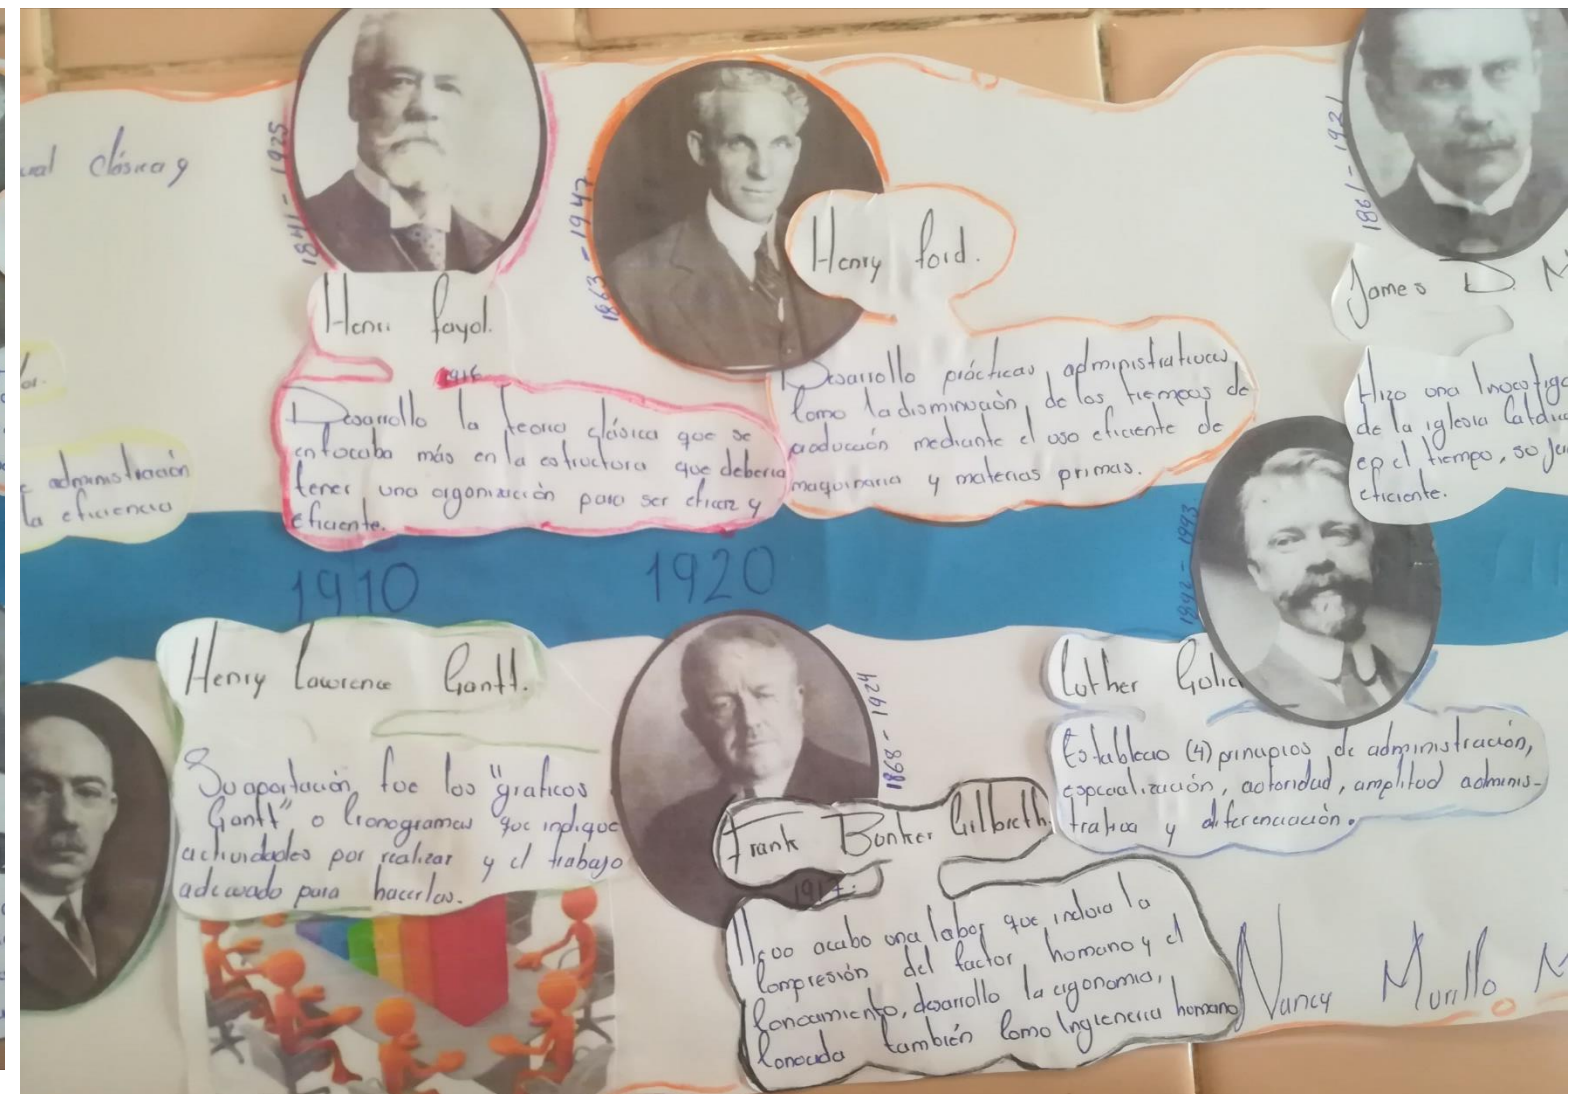 clásica y
administración
la eficiencia
1841 - 1925
Henri fayol.
1916
Desarrollo la teoria clásica que se
enfocaba más en la estructura que deberia
tener una organización para ser eficaz y
eficiente.
1863 - 1947
Henry ford.
Desarrollo prácticas administrativas
como la disminución, de los tiempos de
producción mediante el uso eficiente de
maquinaria y materias primas.
1861 - 1921
James D. M
Hizo una Investiga
de la iglesia Catolica
en el tiempo, so
eficiente.
1910
1920
Henry Lawrence Gantt.
Su aportación, fue los "graficos
Gantt" o Cronogramas que indique
actividades por realizar y el trabajo
adecuado para hacerlas.
1868 - 1924
Frank Bunker Gilbreth.
1917.
llevo acabo una labor que incluia la
Compresión del factor humano y el
Conocamiento, desarrollo la ergonomia,
Conocida también como Ingieneria humano
1892 - 1993
Luther Gulic
Establecio (4) principios de administración,
especialización, autoridad, amplitud adminis-
trativa y diferenciación.
Nancy Murillo M